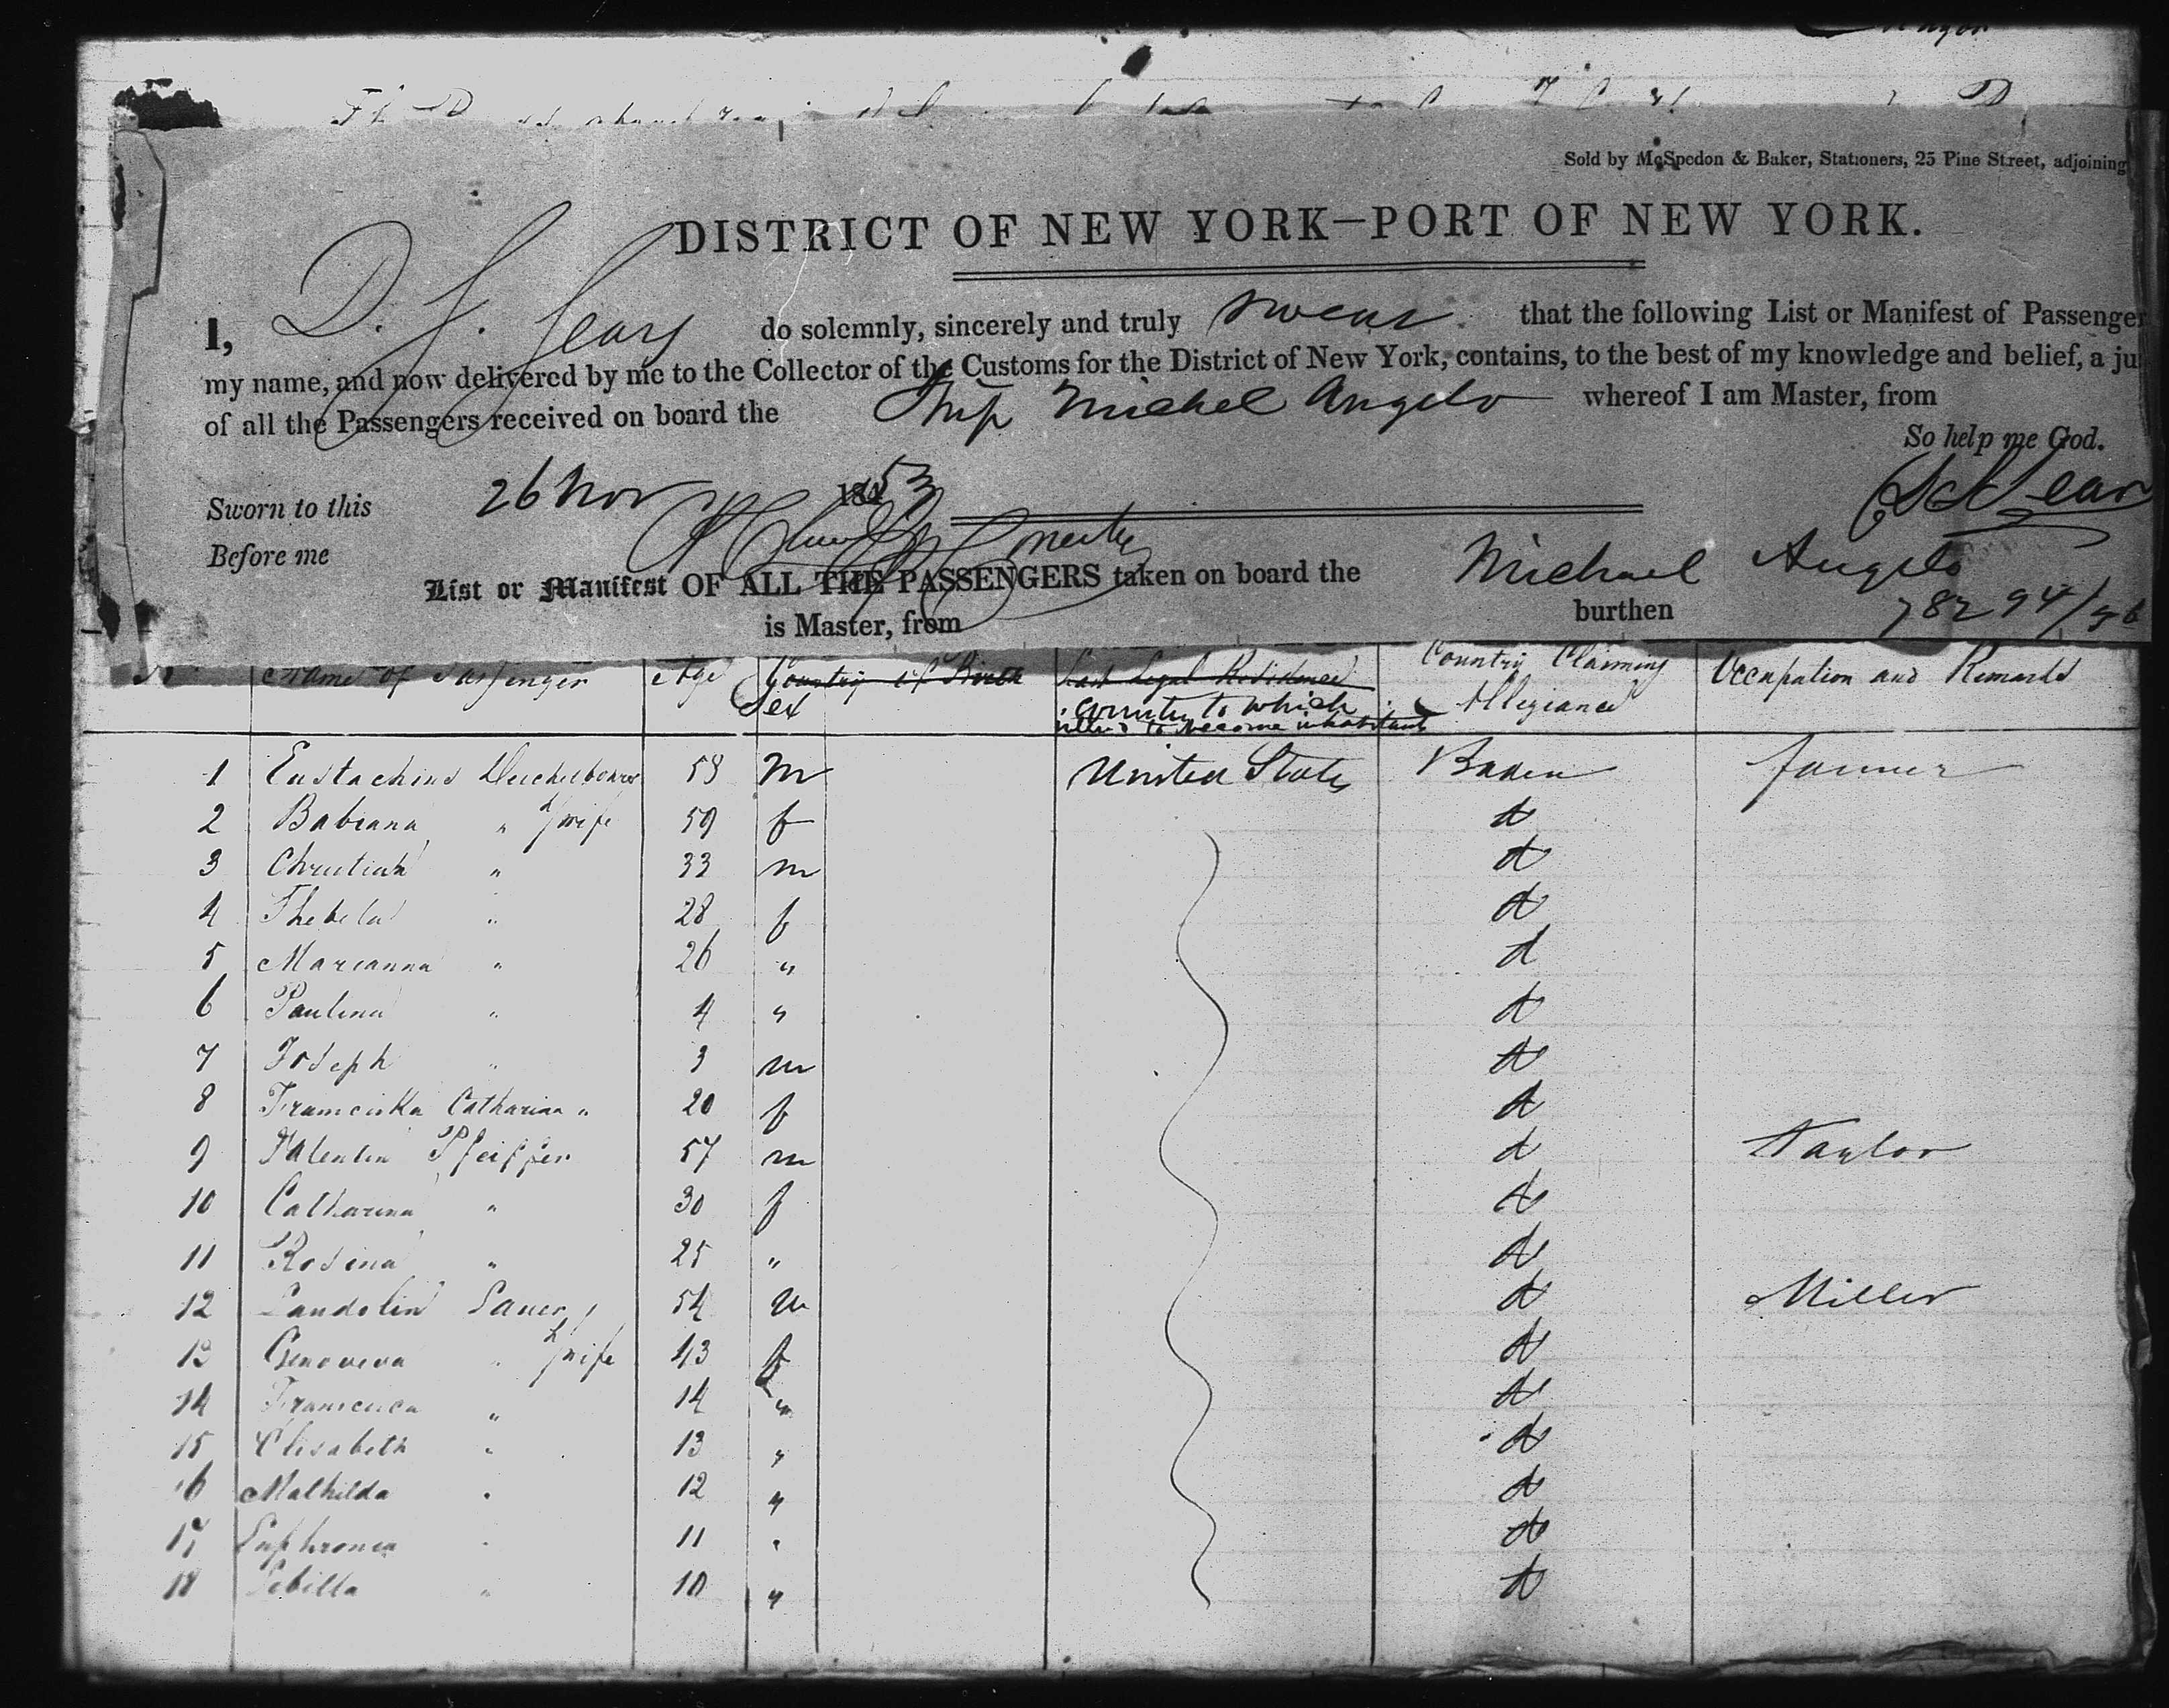 Sold by McSpedon & Baker, Stationers, 25 Pine Street, adjoining
DISTRICT OF NEW YORK—PORT OF NEW YORK.
I, D. S. Sears do solemnly, sincerely and truly swear that the following List or Manifest of Passenger
my name, and now delivered by me to the Collector of the Customs for the District of New York, contains, to the best of my knowledge and belief, a ju
of all the Passengers received on board the Ship Michel Angelo whereof I am Master, from
So help me God.
Sworn to this 26 Nov 1853
Before me
List or Manifest OF ALL THE PASSENGERS taken on board the Michael Angelo
is Master, from burthen 782 94/96
Name of Passenger Age Country of Birth Last Legal Residence Country Claiming Occupation and Remarks
Sex Country to which Allegiance
to become inhabitants
1 Eustachius 58 m United States Baden farmer
2 Babiana " wife 59 f d
3 Christian " 33 m d
4 Thekela " 28 f d
5 Marianna " 26 " d
6 Paulina " 4 " d
7 Joseph " 3 m d
8 Franciska Catharina " 20 f d
9 Valentin Pfeiffer 57 m d Taylor
10 Catharina " 30 f d
11 Rosina " 25 " d
12 Landolin Sauer 54 m d Miller
13 Genoveva " wife 43 f d
14 Francisca " 14 " d
15 Elisabeth " 13 " d
16 Mathilda " 12 " d
17 Euphrosia " 11 " d
18 Sibilla " 10 " d